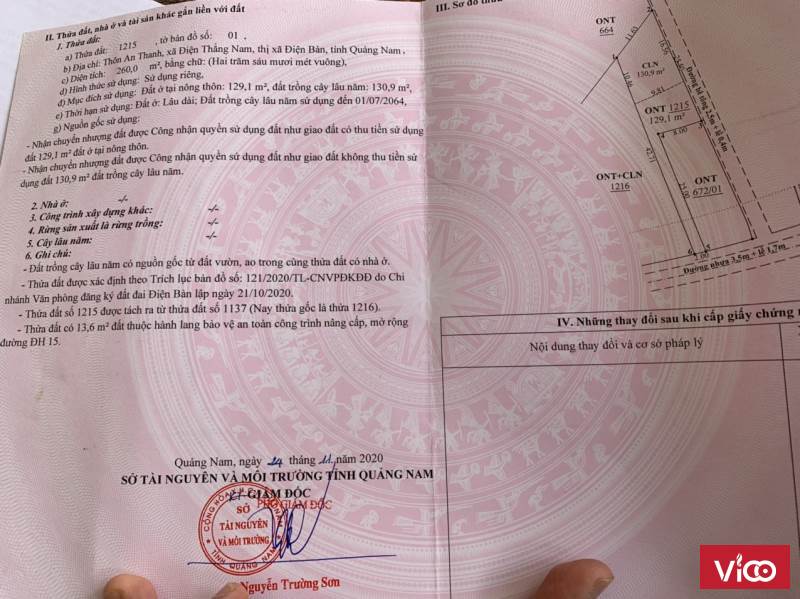 II. Thửa đất, nhà ở và tài sản khác gắn liền với đất
1. Thửa đất:
a) Thửa đất: 1215 , tờ bản đồ số: 01 ,
b) Địa chỉ: Thôn An Thanh, xã Điện Thắng Nam, thị xã Điện Bàn, tỉnh Quảng Nam ,
c) Diện tích: 260,0 m², bằng chữ: (Hai trăm sáu mươi mét vuông),
d) Hình thức sử dụng: Sử dụng riêng,
đ) Mục đích sử dụng: Đất ở tại nông thôn: 129,1 m², đất trồng cây lâu năm: 130,9 m²,
e) Thời hạn sử dụng: Đất ở: Lâu dài; Đất trồng cây lâu năm sử dụng đến 01/07/2064,
g) Nguồn gốc sử dụng:
- Nhận chuyển nhượng đất được Công nhận quyền sử dụng đất như giao đất có thu tiền sử dụng
đất 129,1 m² đất ở tại nông thôn.
- Nhận chuyển nhượng đất được Công nhận quyền sử dụng đất như giao đất không thu tiền sử
dụng đất 130,9 m² đất trồng cây lâu năm.
2. Nhà ở: -/-
3. Công trình xây dựng khác: -/-
4. Rừng sản xuất là rừng trồng: -/-
5. Cây lâu năm: -/-
6. Ghi chú:
- Đất trồng cây lâu năm có nguồn gốc từ đất vườn, ao trong cùng thửa đất có nhà ở.
- Thửa đất được xác định theo Trích lục bản đồ số: 121/2020/TL-CNVPĐKĐĐ do Chi
nhánh Văn phòng đăng ký đất đai Điện Bàn lập ngày 21/10/2020.
- Thửa đất số 1215 được tách ra từ thửa đất số 1137 (Nay thửa gốc là thửa 1216).
- Thửa đất có 13,6 m² đất thuộc hành lang bảo vệ an toàn công trình nâng cấp, mở rộng
đường ĐH 15.
Quảng Nam, ngày 24 tháng 11 năm 2020
SỞ TÀI NGUYÊN VÀ MÔI TRƯỜNG TỈNH QUẢNG NAM
KT GIÁM ĐỐC
PHÓ GIÁM ĐỐC
SỞ
TÀI NGUYÊN
VÀ MÔI TRƯỜNG
TỈNH QUẢNG NAM
Nguyễn Trường Sơn
III. Sơ đồ thửa
ONT
664
11.63
CLN
130,9 m²
10.46
9.81
ONT 1215
129,1 m²
8.00
Đường bê tông 2,5m + lề 0,4m
42.71
ONT+CLN
1216
ONT
672/01
5.00
Đường nhựa 3,5m + lề 1,7m
IV. Những thay đổi sau khi cấp giấy chứng
Nội dung thay đổi và cơ sở pháp lý
ViCO